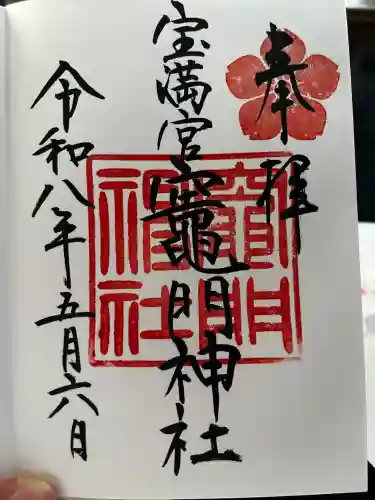 奉拝
宝満宮竈門神社
竈門神社
令和八年五月六日